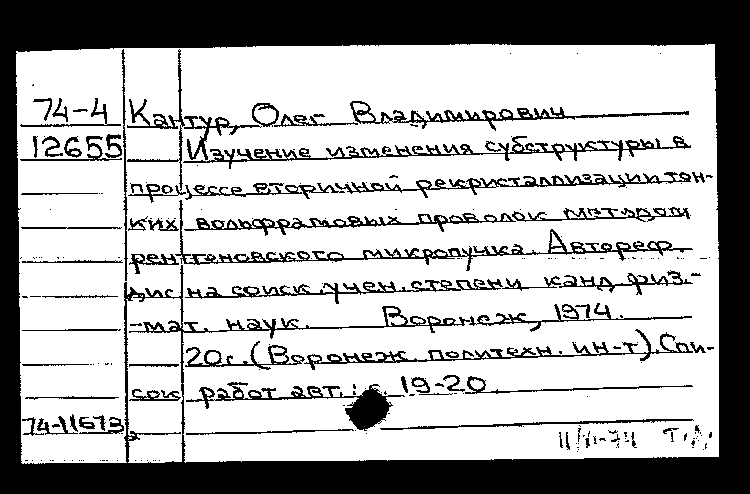 74-4 Кантур, Олег Владимирович
12655 Изучение изменения субструктуры в
процессе вторичной рекристаллизации тон-
ких вольфрамовых проволок методом
рентгеновского микропучка. Автореф.
дис. на соиск. учен. степени канд физ.-
-мат. наук. Воронеж, 1974.
20с. (Воронеж. политехн. ин-т). Спи-
сок работ авт.: с 19-20
74-11673